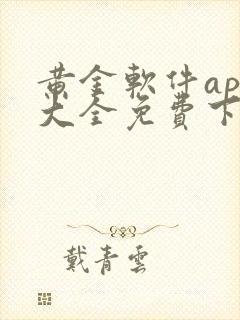 黃金軟件ap
大全免費下
戴青雲